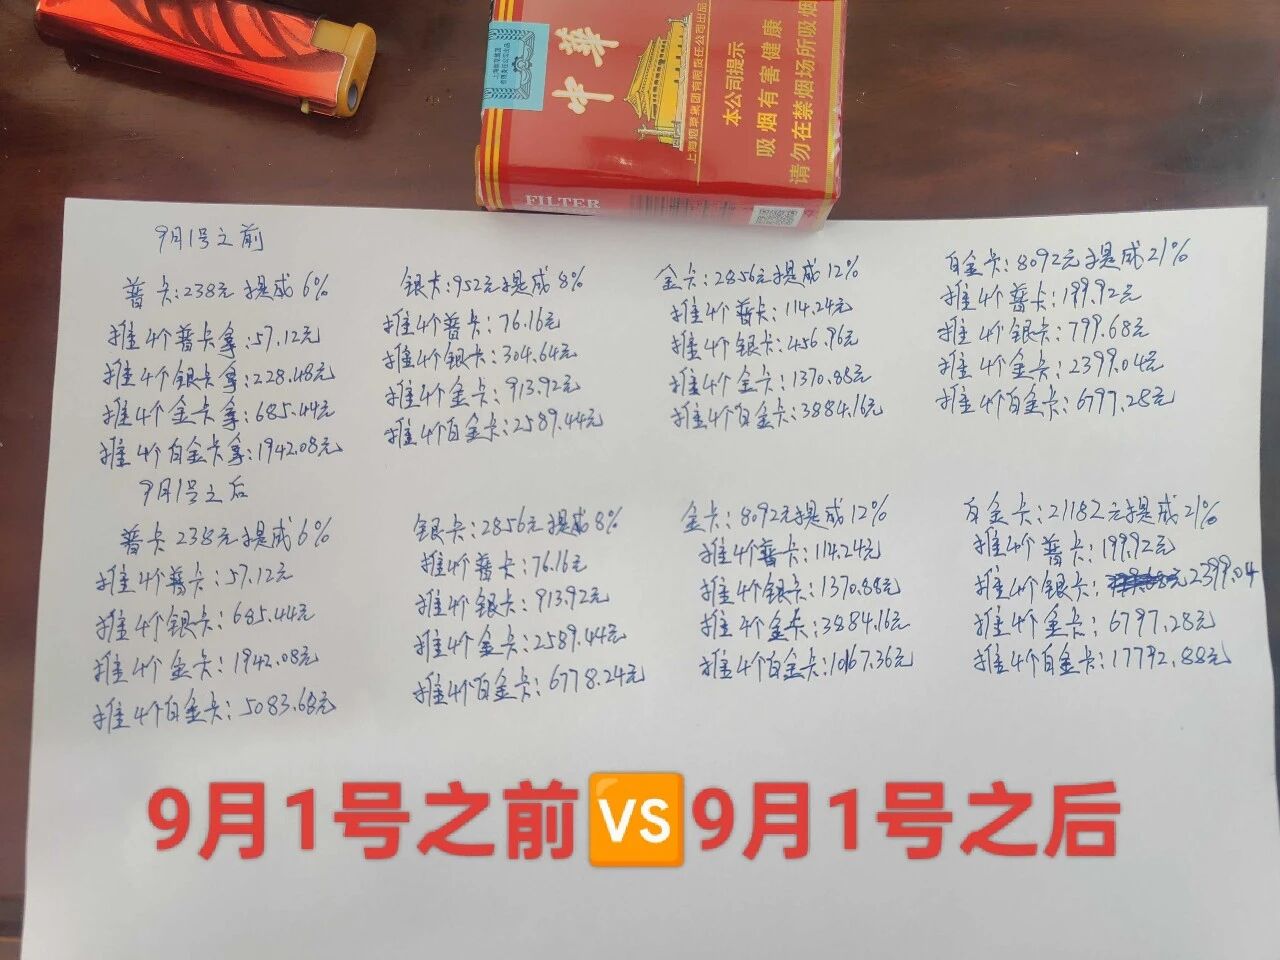 中华
上海烟草集团有限责任公司出品
本公司提示
吸烟有害健康
请勿在禁烟场所吸烟
FILTER
9月1号之前
普卡:238元提成6%
推4个普卡拿:57.12元
推4个银卡拿:228.48元
推4个金卡拿:685.44元
推4个白金卡拿:1942.08元
银卡:952元提成8%
推4个普卡:76.16元
推4个银卡:304.64元
推4个金卡:913.92元
推4个白金卡:2589.44元
金卡:2856元提成12%
推4个普卡:114.24元
推4个银卡:456.96元
推4个金卡:1370.88元
推4个白金卡:3884.16元
白金卡:8092元提成21%
推4个普卡:199.92元
推4个银卡:799.68元
推4个金卡:2399.04元
推4个白金卡:6797.28元
9月1号之后
普卡238元提成6%
推4个普卡:57.12元
推4个银卡:685.44元
推4个金卡:1942.08元
推4个白金卡:5083.68元
银卡:2856元提成8%
推4个普卡:76.16元
推4个银卡:913.92元
推4个金卡:2589.44元
推4个白金卡:6778.24元
金卡:8092元提成12%
推4个普卡:114.24元
推4个银卡:1370.88元
推4个金卡:3884.16元
推4个白金卡:10167.36元
白金卡:21182元提成21%
推4个普卡:199.92元
推4个银卡:2399.04
推4个金卡:6797.28元
推4个白金卡:17792.88元
9月1号之前VS9月1号之后